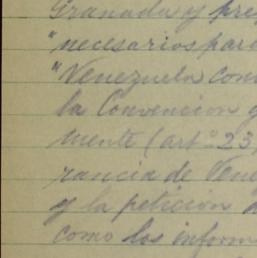 Granada y pre
"necesarios para
"Venezuela com
la Convencion q
mente (artº 23
rancia de Vene
y la peticion d
como los inform